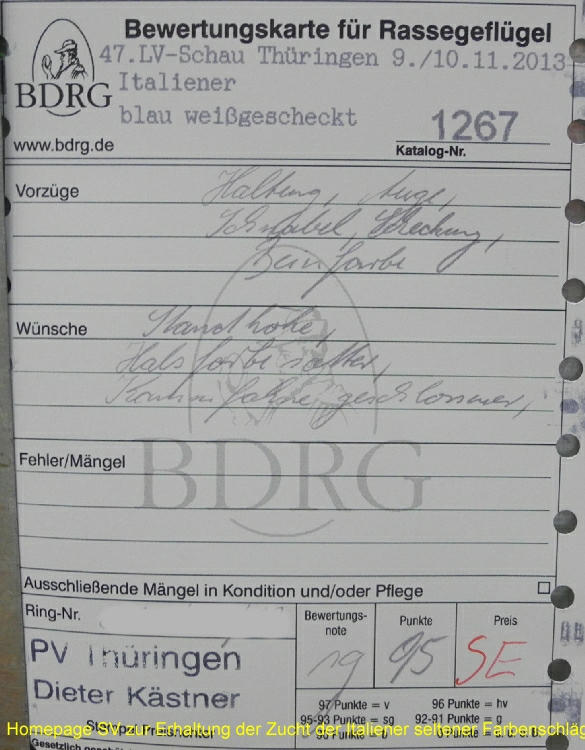 Bewertungskarte für Rassegeflügel
47.LV-Schau Thüringen 9./10.11.2013
Italiener
BDRG
blau weißgescheckt
1267
www.bdrg.de
Katalog-Nr.
Vorzüge
Haltung, Auge,
Schnabel, Streckung,
Beinfarbe
Wünsche
Standhöhe,
Halsfarbe satter,
geschlossener,
Fehler/Mängel
BDRG
Ausschließende Mängel in Kondition und/oder Pflege
Ring-Nr.
Bewertungs-
note
Punkte
Preis
PV Thüringen
sg
95
SE
Dieter Kästner
97 Punkte = v
96 Punkte = hv
95-93 Punkte = sg
92-91 Punkte = g
90 Punkte = b
Homepage SV zur Erhaltung der Zucht der Italiener seltener Farbenschläg